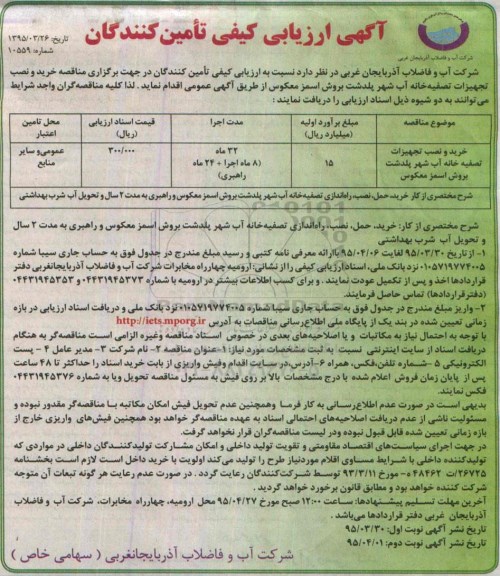 آگهی ارزیابی کیفی تأمین‌کنندگان
تاریخ: ۱۳۹۵/۰۳/۲۶
شماره: ۱۰۵۵۹
شرکت آب و فاضلاب آذربایجان غربی
شرکت آب و فاضلاب آذربایجان غربی در نظر دارد نسبت به ارزیابی کیفی تأمین کنندگان در جهت برگزاری مناقصه خرید و نصب
تجهیزات تصفیه‌خانه آب شهر پلدشت بروش اسمز معکوس از طریق آگهی عمومی اقدام نماید . لذا کلیه مناقصه‌گران واجد شرایط
می‌توانند به دو شیوه ذیل اسناد ارزیابی را دریافت نمایند :
موضوع مناقصه
مبلغ برآورد اولیه (میلیارد ریال)
مدت اجرا
قیمت اسناد ارزیابی (ریال)
محل تامین اعتبار
خرید و نصب تجهیزات
تصفیه خانه آب شهر پلدشت
بروش اسمز معکوس
۱۵
۳۲ ماه
(۸ ماه اجرا + ۲۴ ماه
راهبری)
۳۰۰/۰۰۰
عمومی‌و سایر
منابع
شرح مختصری از کار: خرید، حمل، نصب، راه‌اندازی تصفیه‌خانه آب شهر پلدشت بروش اسمز معکوس و راهبری به مدت ۲ سال و تحویل آب شرب بهداشتی
شرح مختصری از کار: خرید، حمل، نصب، راه‌اندازی تصفیه‌خانه آب شهر پلدشت بروش اسمز معکوس و راهبری به مدت ۲ سال
و تحویل آب شرب بهداشتی
۱- از تاریخ ۹۵/۰۳/۳۰ لغایت ۹۵/۰۴/۰۶ با ارائه معرفی نامه کتبی و رسید مبلغ مندرج در جدول فوق به حساب جاری سیبا شماره
۰۱۰۵۷۱۹۷۷۴۰۰۵ نزد بانک ملی، اسناد ارزیابی کیفی را از نشانی: ارومیه چهارراه مخابرات شرکت آب و فاضلاب آذربایجانغربی دفتر
قراردادها اخذ و پس از تکمیل عودت نمایند . و برای کسب اطلاعات بیشتر در ارومیه با شماره ۰۴۴۳۱۹۴۵۳۷۳ و ۰۴۴۳۱۹۴۵۳۵۳
(دفتر قراردادها) تماس حاصل فرمایند.
۲- واریز مبلغ مندرج در جدول فوق به حساب جاری سیبا شماره ۰۱۰۵۷۱۹۷۷۴۰۰۵ نزد بانک ملی و دریافت اسناد ارزیابی در بازه
زمانی تعیین شده در بند یک از پایگاه ملی اطلاع‌رسانی مناقصات به آدرس http://iets.mporg.ir
با توجه به احتمال نیاز به مکاتبات و یا اصلاحیه‌های بعدی در خصوص اسناد مناقصه وغیره الزامی است مناقصه‌گر به هنگام
دریافت اسناد از سایت اینترنتی نسبت به ثبت مشخصات مورد نیاز: ۱- عنوان مناقصه ۲- نام شرکت ۳- مدیر عامل ۴ - پست
الکترونیکی ۵ -شماره تلفن،فکس، همراه ۶-آدرس،در سایت اقدام وفیش واریزی از بابت خرید اسناد را حداکثر تا ۴۸ ساعت
پس از پایان زمان فروش اعلام شده با درج مشخصات بالا بر روی فیش به مسئول مناقصه تحویل ویا به شماره ۰۴۴۳۱۹۴۵۳۷۶
فکس نمایند.
بدیهی است در صورت عدم اطلاع‌رسانی به کار فرما وهمچنین عدم تحویل فیش امکان مکاتبه با مناقصه‌گر مقدور نبوده و
مسئولیت ناشی از عدم دریافت اصلاحیه‌های احتمالی اسناد به عهده مناقصه‌گر خواهد بود همچنین فیش‌های واریزی خارج از
بازه زمانی تعیین شده قابل قبول نبوده ودر لیست مناقصه‌گران قرار نخواهد گرفت.
در جهت اجرای سیاست‌های اقتصاد مقاومتی و تقویت تولید داخلی و امکان مشارکت تولیدکنندگان داخلی در مواردی که
تولیدکننده داخلی با شرایط مساوی اقلام موردنیاز طرح را تولید می‌کند اولویت با خرید داخل است لازم است بخشنامه
۲۶۷۲۵/ت ۴۸۴۶۲ ه- مورخ ۹۳/۳/۱۱ توسط شرکت‌کنندگان رعایت گردد . در صورت عدم رعایت هر گونه تبعات آن متوجه
شرکت کننده خواهد بود و مطابق قانون برخورد خواهد گردید .
آخرین مهلت تسلیم پیشنهادها: ساعت ۱۲:۰۰ صبح مورخ ۹۵/۰۴/۲۷ محل ارومیه، چهارراه مخابرات، شرکت آب و فاضلاب
آذربایجان غربی دفتر قراردادها می‌باشد .
تاریخ نشر آگهی نوبت اول: ۹۵/۰۳/۳۰
تاریخ نشر آگهی نوبت دوم: ۹۵/۰۴/۰۱
شرکت آب و فاضلاب آذربایجانغربی ( سهامی خاص )